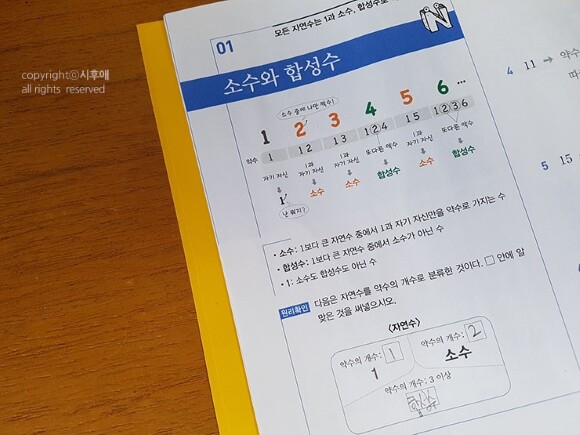 copyrightⓒ시후애
all rights reserved
01
모든 자연수는 1과 소수, 합성수로
N
소수와 합성수
소수 중에 나만 짝수!
1 2 3 4 5 6 ···
약수 1 1 2 1 3 1 2 4 1 5 1 2 3 6
자기 자신 1과 자기 자신 1과 자기 자신 또다른 약수 1과 자기 자신 또다른 약수
1 소수 소수 합성수 소수 합성수
난 뭐지?
• 소수: 1보다 큰 자연수 중에서 1과 자기 자신만을 약수로 가지는 수
• 합성수: 1보다 큰 자연수 중에서 소수가 아닌 수
• 1: 소수도 합성수도 아닌 수
원리확인 다음은 자연수를 약수의 개수로 분류한 것이다. □ 안에 알
맞은 것을 써넣으시오.
〈자연수〉
약수의 개수: 1
1
약수의 개수: 2
소수
약수의 개수: 3 이상
합성수
4 11 ➔ 약수
5 15